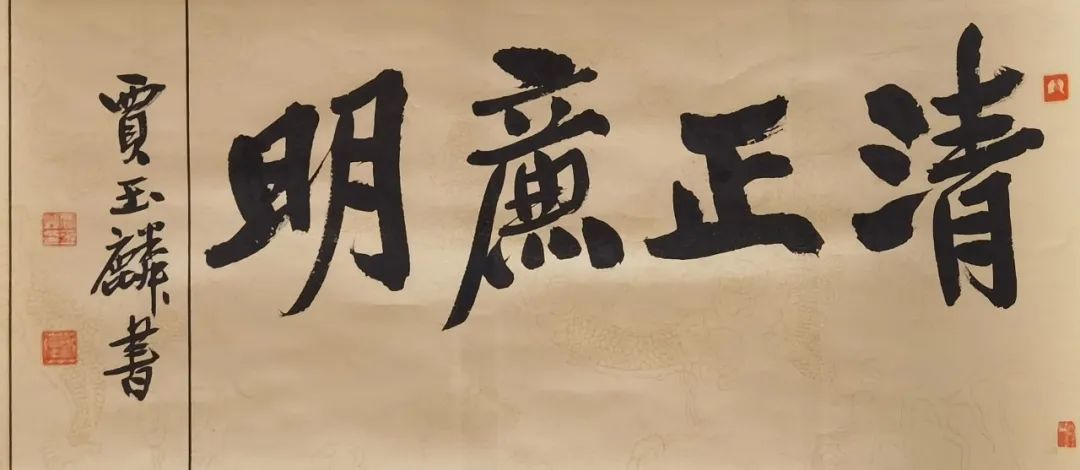 清正廉明
賈玉麟書